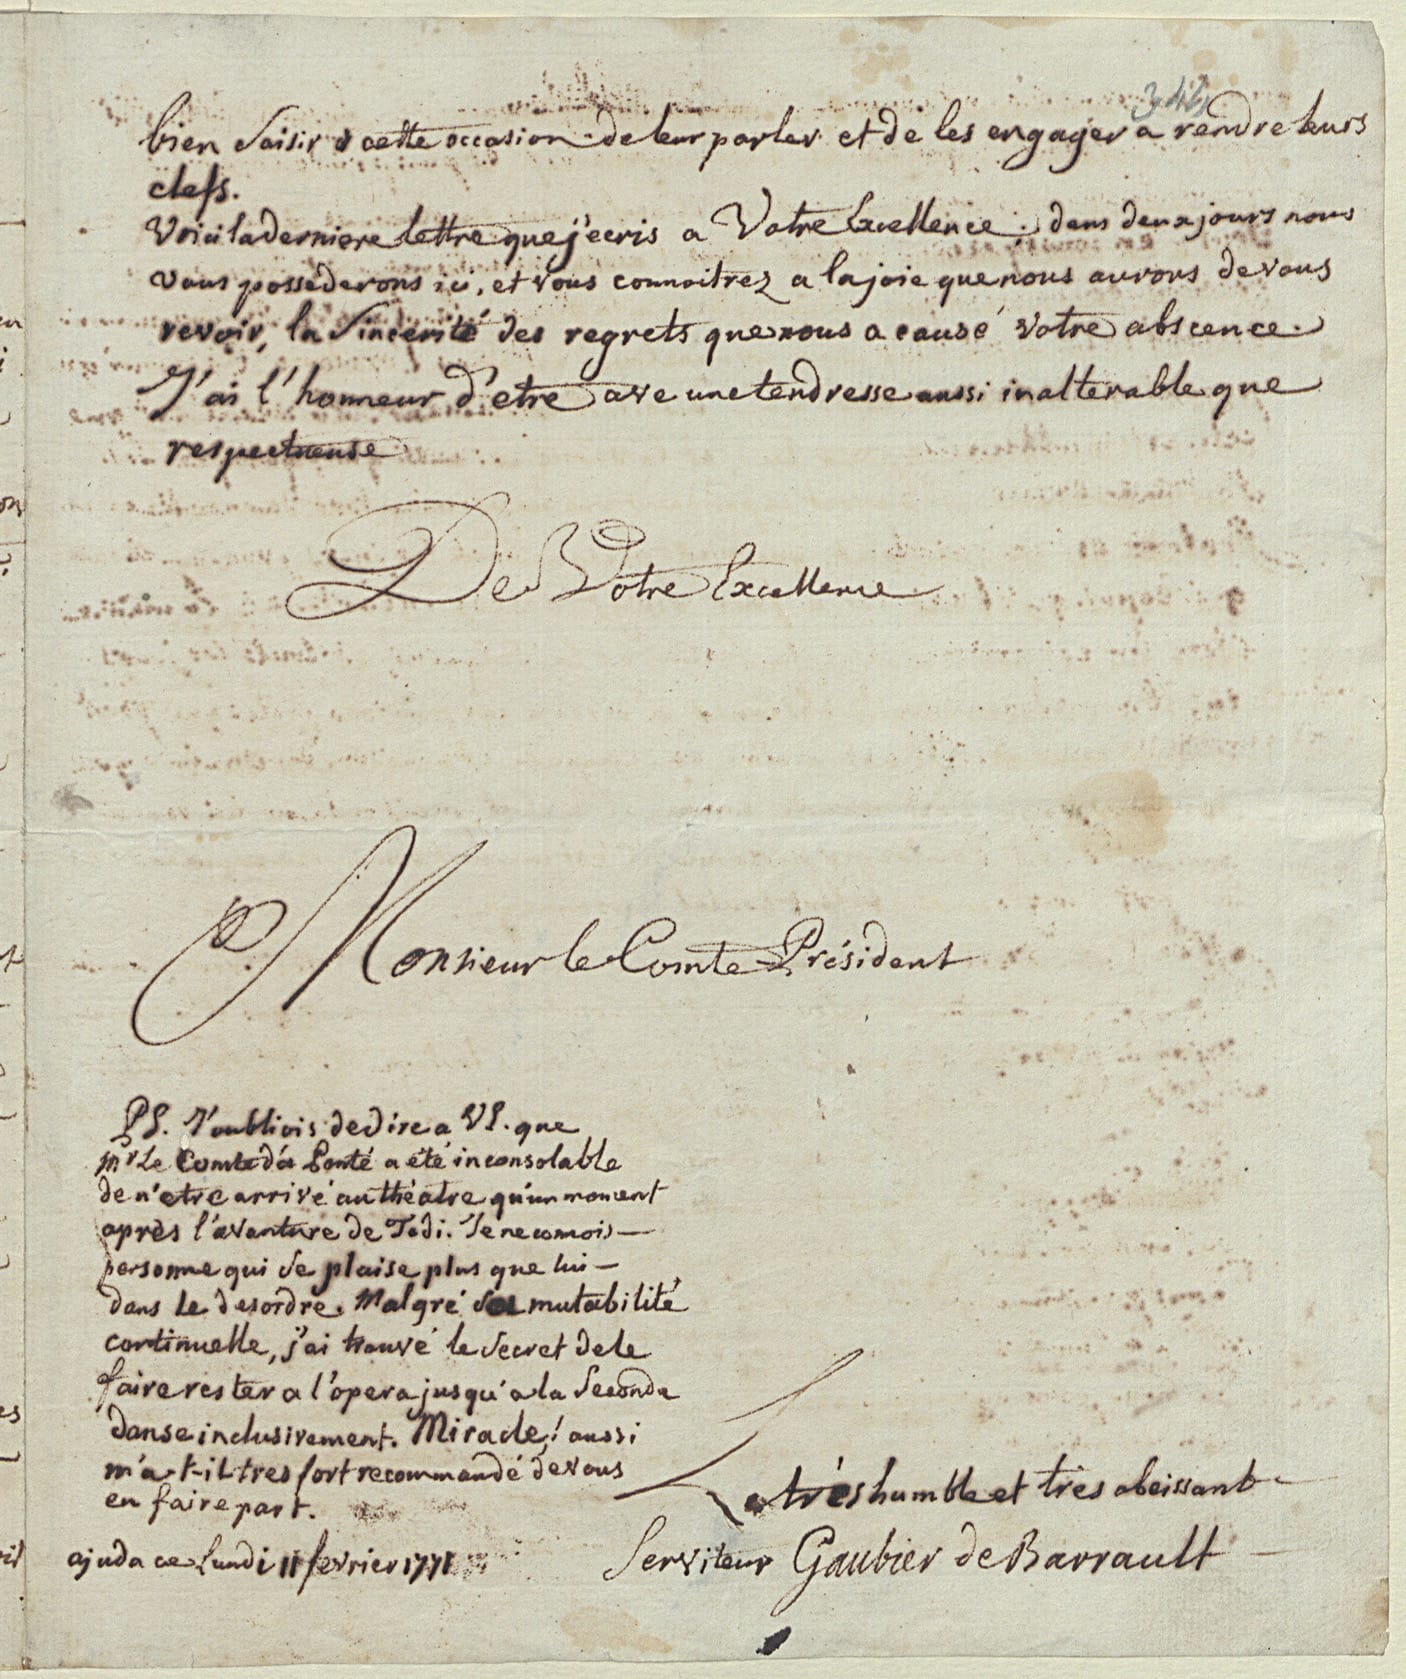 bien saisir cette occasion de leur parler et de les engager a rendre leurs
clefs.
Voici la derniere lettre que j'ecris a Votre Excellence; dans deux jours nous
vous possederons ici, et vous connoitrez a la joie que nous aurons de vous
revoir, la sincerité des regrets que nous a causé votre abscence.
J'ai l'honneur d'etre ave une tendresse aussi inalterable que
respectueuse
De Votre Excellence
Monsieur le Comte Président
PS. J'oubliois de dire a VE. que
mr Le Comte da Ponté a été inconsolable
de n'etre arrivé au théatre qu'un moment
après l'avanture de Todi. Je ne connois
personne qui se plaise plus que lui
dans le desordre. Malgré sa mutabilité
continuelle, j'ai trouvé le secret de le
faire rester a l'opera jusqu'a la seconde
danse inclusivement. Miracle! aussi
m'a-t-il tres fort recommandé de vous
en faire part.
Le trés humble et tres obeissant
Serviteur Gaubier de Barrault
ajuda ce Lundi 11 fevrier 1771